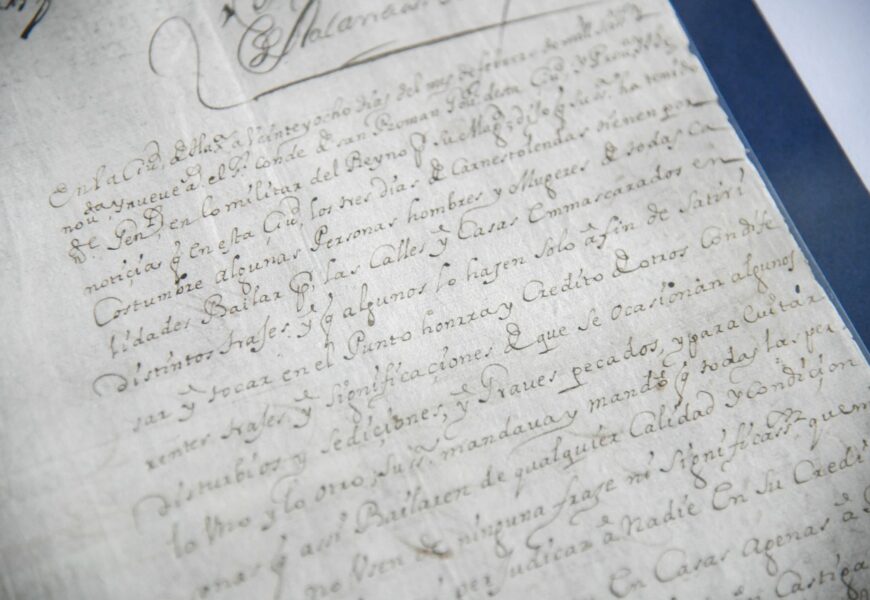 En la Ciu.d de Huᵃ a Veinte y ocho días del mes de febrero de mill
nou.ta y nueve a.s el S.r Conde de san Roman Gov.r desta Ciu.d y
Pen.te en lo militar del Reyno p. su Mag.d dijo q̃ su s.a ha tenido
noticias q̃ en esta Ciu.d los tres días de Carnestolendas tienen por
Costumbre algunas Personas hombres y Mugeres de todas Ca
lidades Bailar p.r las Calles y Casas Emmascarados en
distintos trajes y q̃ algunos lo hasen solo a fin de satiri
sar y tocar en el Punto honrra y Credito de otros Con dife
rentes trajes y significaciones de que se ocasionan algunos
disturbios y sediciones, y Graves pecados, y para Evitar
lo Uno y lo otro, su s.a mandava y mandò q̃ todas las per
onas q̃ assi Bailaren de qualquier Calidad y Condicion
no Usen de ninguna frase ni significass.n que
perjudicar a Nadie En su Credi
En Casas Agenas a
Castiga